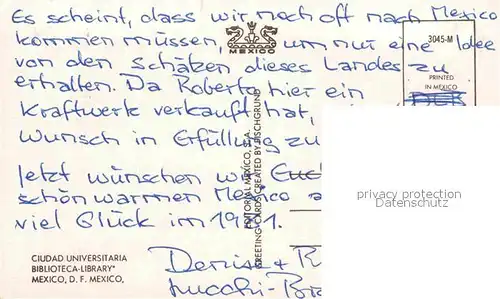 Es scheint, dass wir noch oft nach Mexico
kommen müssen, um nur eine Idee
von den Schätzen dieses Landes zu
erhalten. Da Roberto hier ein
Kraftwerk verkauft hat,
Wunsch in Erfüllung zu
Jetzt wünschen wir
schön warmen Mexico
viel Glück im 1981.
Denise +
MEXICO
3045-M
PRINTED
IN MEXICO
EDITORIAL MEXICO, S. A.
GREETING CARDS CREATED BY FISCHGRUND
privacy protection
Datenschutz
CIUDAD UNIVERSITARIA
BIBLIOTECA-LIBRARY"
MEXICO, D. F. MEXICO,